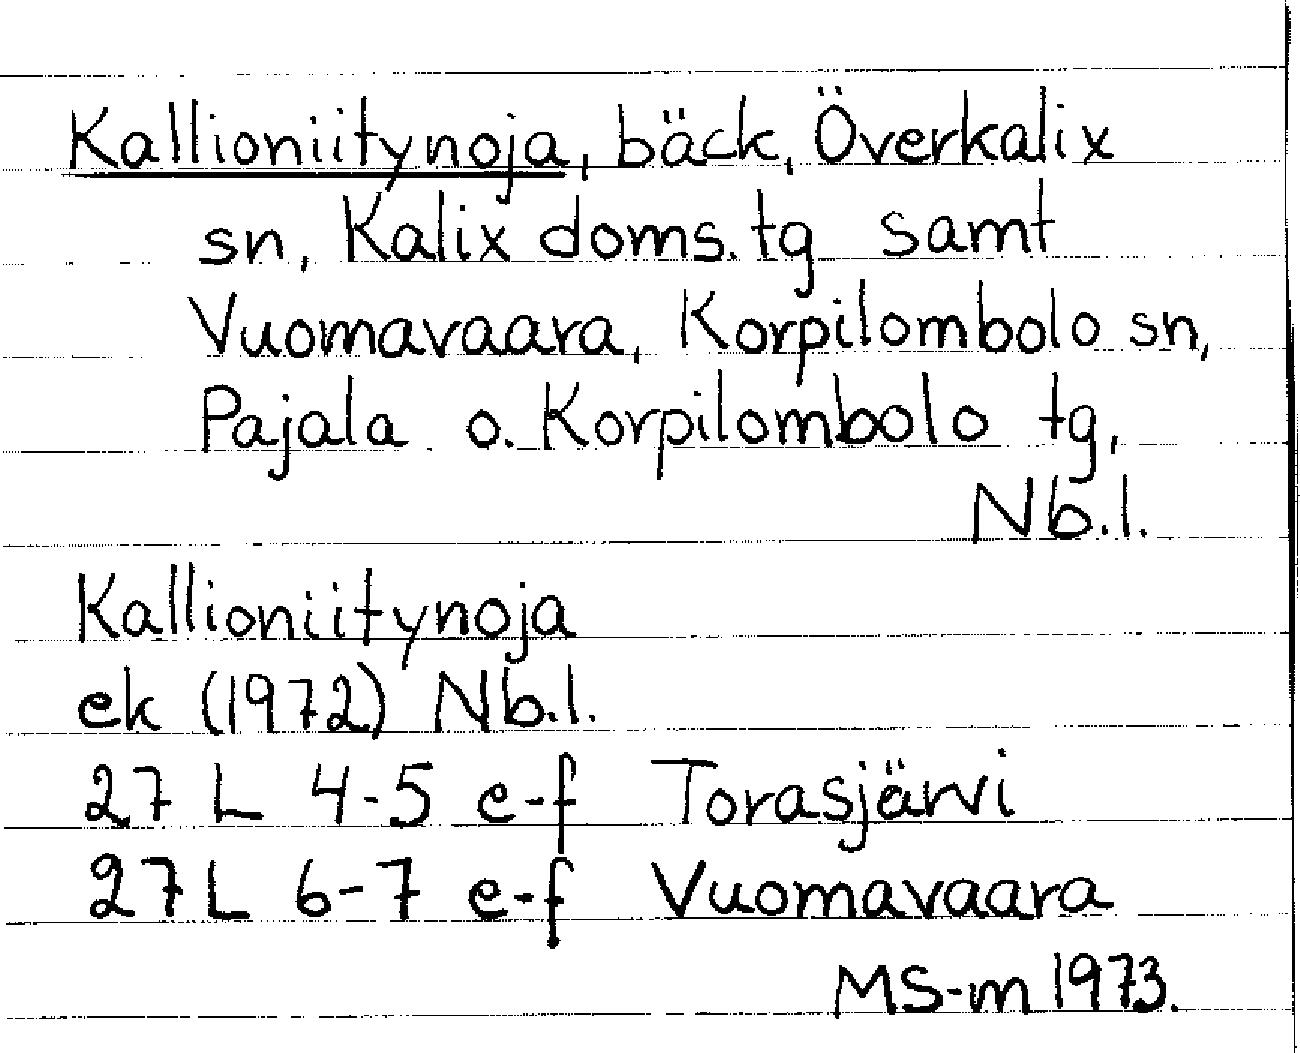 Kallioniitynoja, bäck, Överkalix
sn, Kalix doms. tg samt
Vuomavaara, Korpilombolo sn,
Pajala o. Korpilombolo tg,
Nb.l.
Kallioniitynoja
ek (1972) Nb.l.
27 L 4-5 e-f Torasjärvi
27 L 6-7 e-f Vuomavaara
MS-m 1973.